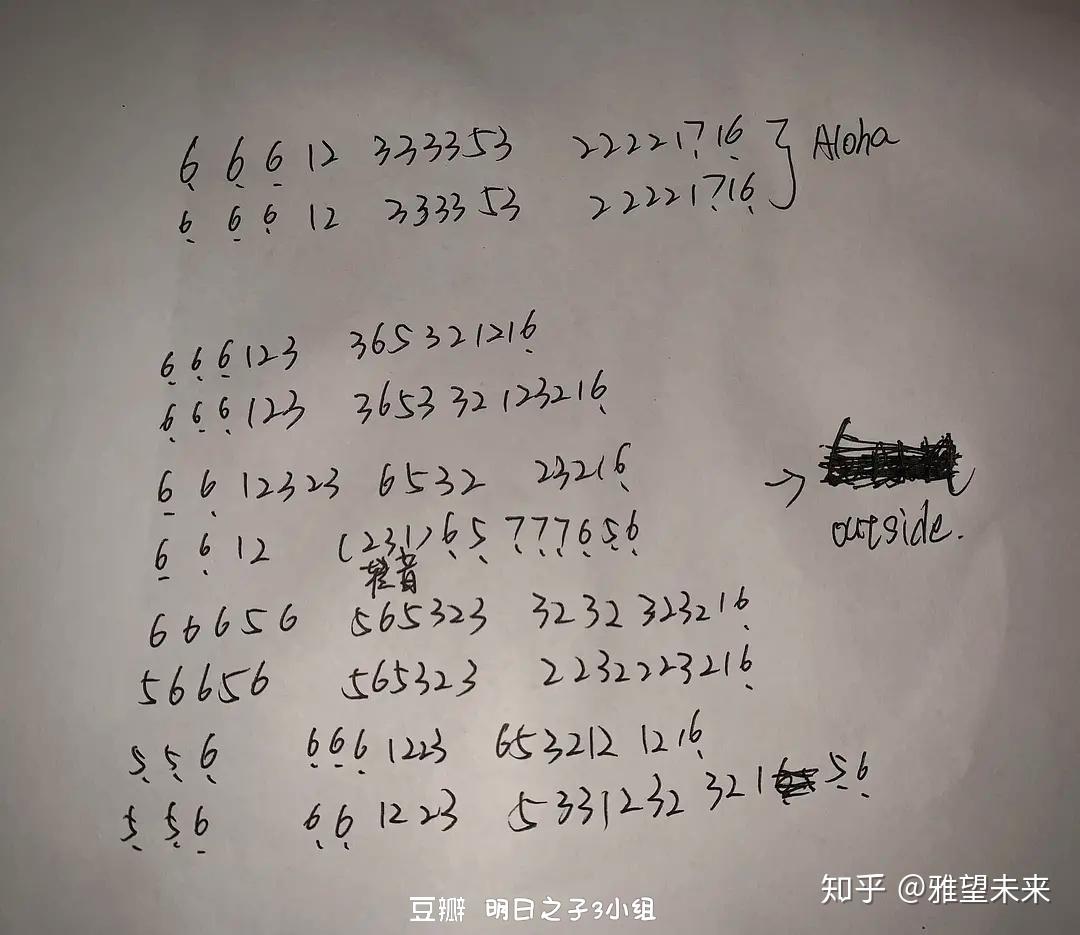 6̣ 6̣ 6̣ 12 333353 222217̣16̣ } Aloha
6̣ 6̣ 6̣ 12 3333 53 222217̣16̣
6̣ 6̣ 6̣ 123 365321216̣
6̣ 6̣ 6̣ 123 3653 32 123216̣
6̣ 6̣ 12323 6532 23216̣
→ outside.
6̣ 6̣ 12 (231)6̣ 5̣ 7̣7̣7̣6̣ 5̣6̣
装音
66656 565323 3232 323216̣
56656 565323 2232223216̣
5̣ 5̣ 6̣ 6̣6̣6̣ 1223 653212 1216̣
5̣ 5̣ 6̣ 6̣6̣ 1223 5331232 321 5̣6̣
知乎 @雅望未来
豆瓣 明日之子3小组